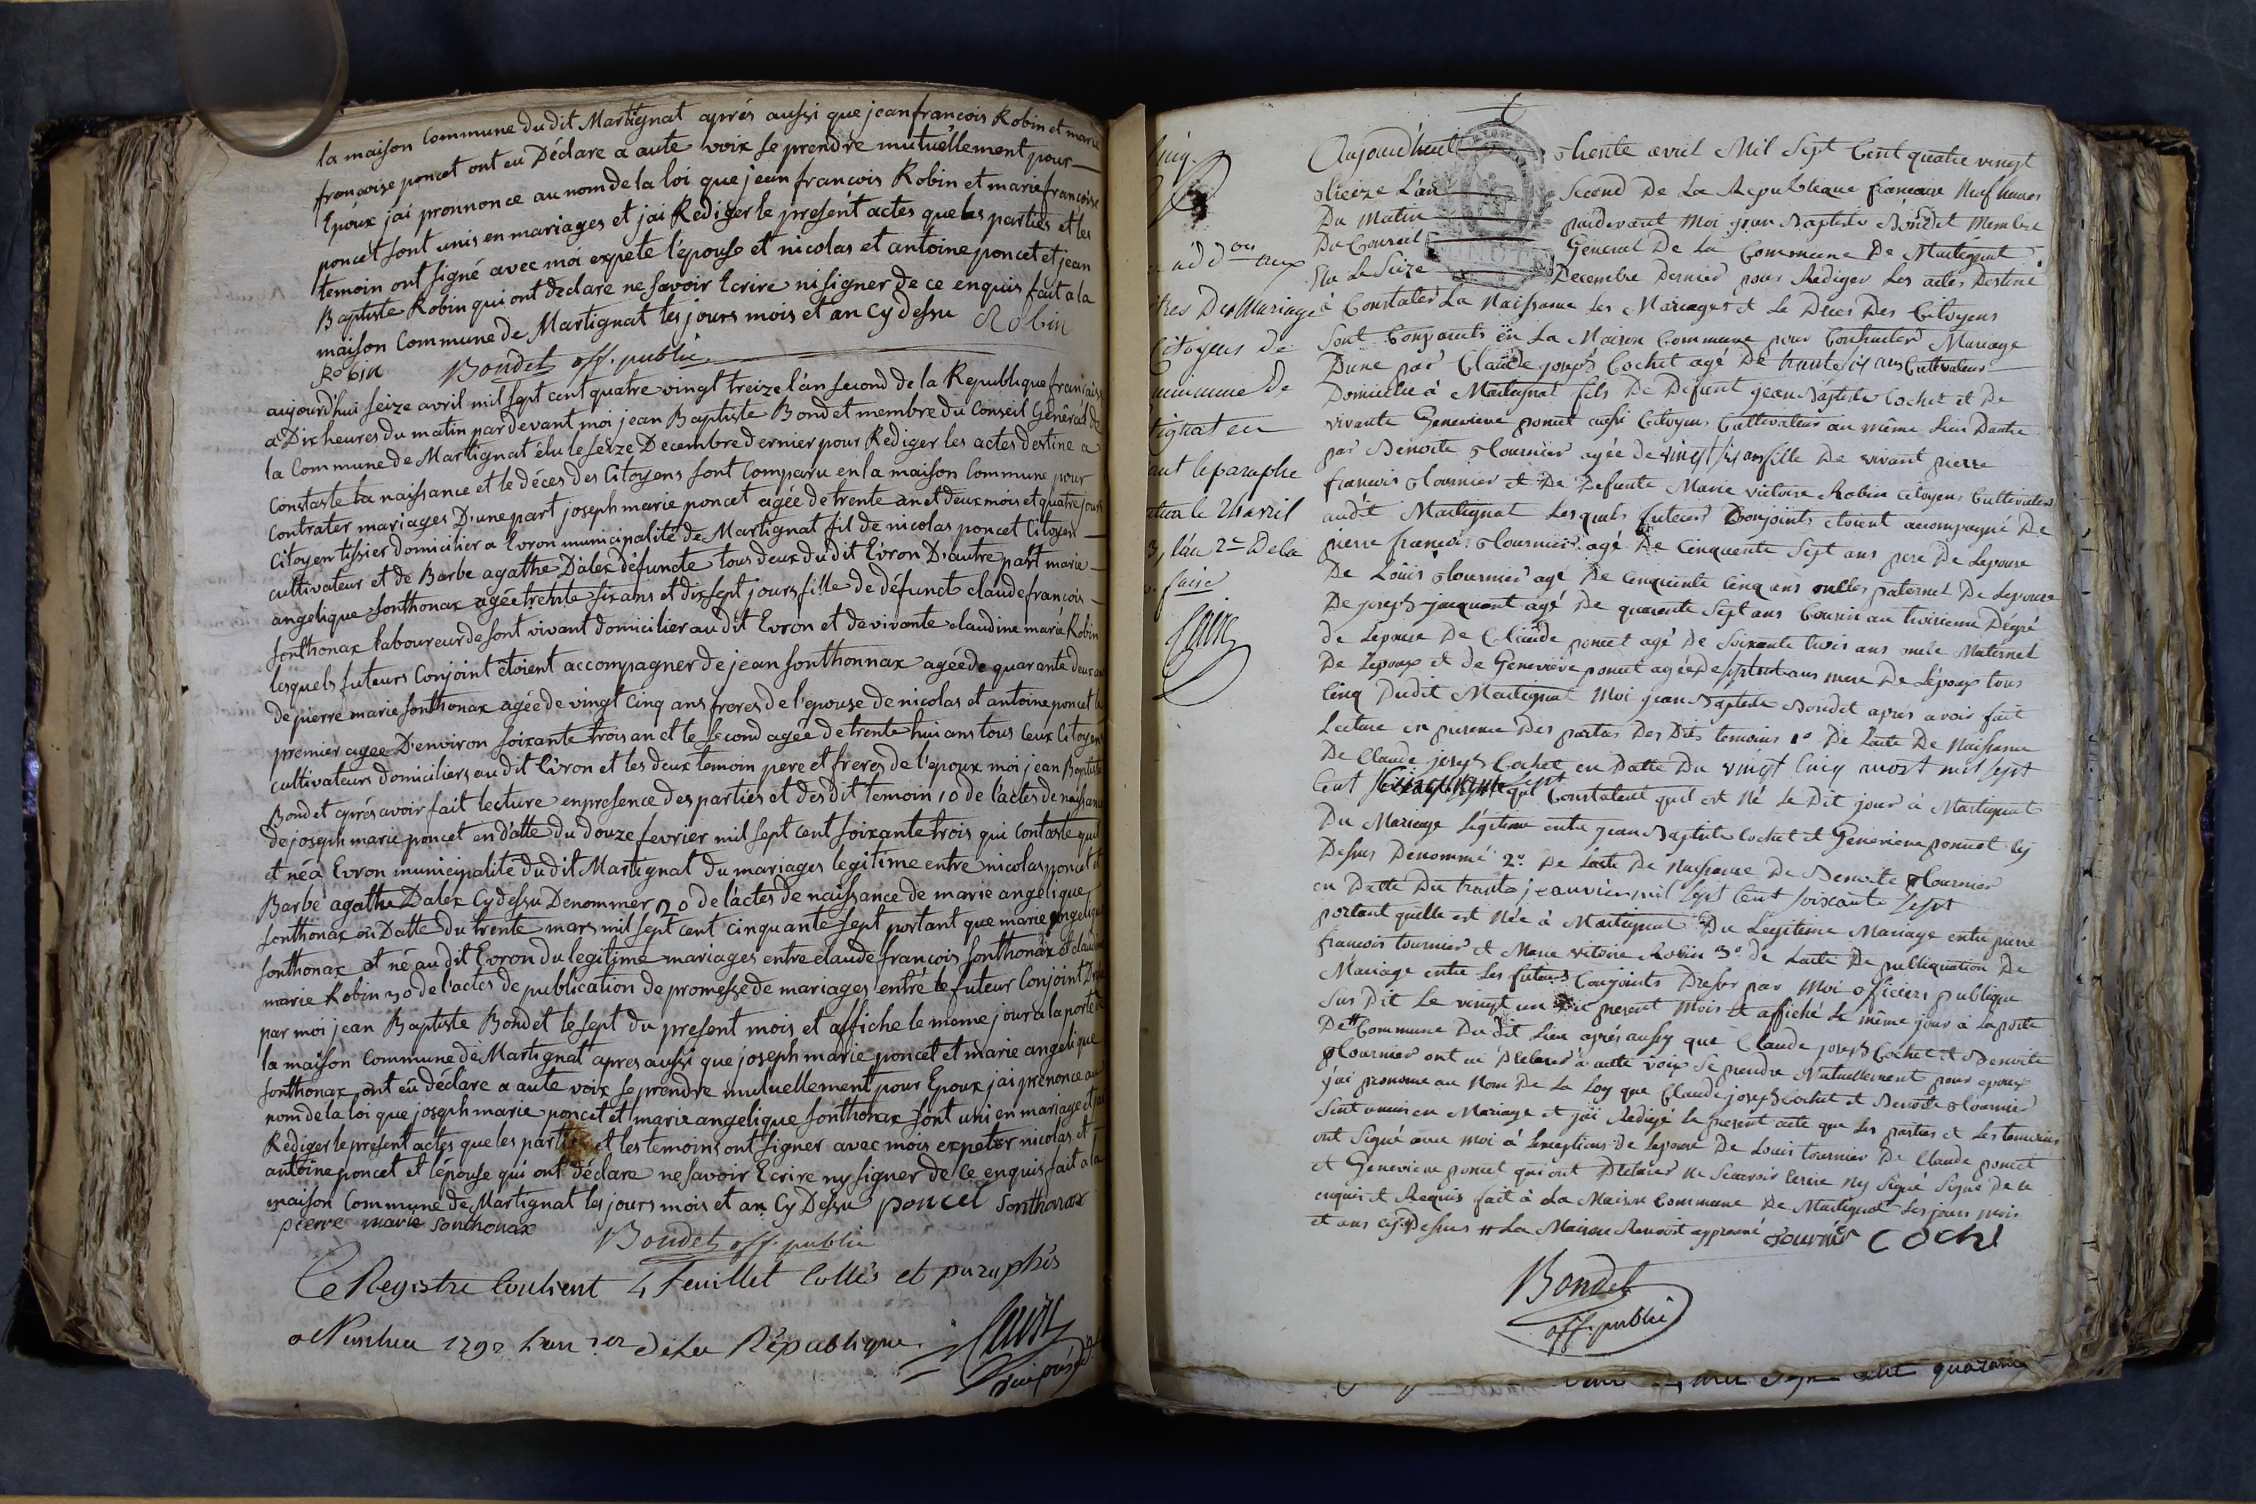 la maison Commune du dit Martignat aprés aussi que jean francois Robin et marie
francoise poncet ont eu Déclare a aute voix se prendre mutuëllement pour
Epoux jai pronnonce au nom de la loi que jean francois Robin et marie francoise
poncet sont unis en mariages et jai Rediger le present actes que les parties et les
temoin ont signé avec moi expete l'épouse et nicolas et antoine poncet et jean
Baptiste Robin qui ont declare ne savoir Ecrire ni signer de ce enquis fait a la
maison Commune de Martignat les jours mois et an Cy dessu Robin
Robin Bondet off. public
aujourd'hui seize avril mil sept cent quatre vingt treize l'an second de la Republique francaise
a Dix heures du matin par devant moi jean Baptiste Bondet membre du Conseil Géneral de
la Commune de Martignat élu le seize Decembre dernier pour Rediger les actes destine a
Constaste la naissance et le déces des Citoyens sont Comparu en la maison Commune pour
Contrater mariages D'une part joseph marie poncet agée de trente an et deux mois et quatre jours
Citoyen tissier domicilier a Evron municipalité de Martignat fil de nicolas poncet Citoyen
cultivateur et de Barbe agathe Dalex défuncte tous deux du dit Evron D'autre part marie
angelique sonthonax agée trente six ans et dix sept jours fille de défunct claude francois
sonthonax laboureur de sont vivant domicilier au dit Evron et de vivante claudine marie Robin
lesquels futeurs Conjoint étoient accompagner de jean sonthonnax agée de quarante deux ans
de pierre marie sonthonax agée de vingt Cinq ans freres de l'epouse de nicolas et antoine poncet le
premier agee D'environ soixante trois an et le second agée de trente huit ans tous ceux Citoyens
cultivateurs domiciliers au dit Evron et les deux temoin pere et freres de l'époux moi jean Baptiste
Bondet aprés avoir fait lecture en presence des parties et des dit temoin 1o de l'actes de naissance
de joseph marie poncet en datte du douze fevrier mil sept cent soixante trois qui Contaste quil
et né a Evron municipalité du dit Martignat du mariages legitime entre nicolas poncet et
Barbe agathe Dalex Cy dessu Denommer 2o de l'actes de naissance de marie angelique
sonthonax en Datte du trente mars mil sept cent cinquante sept portant que marie angelique
sonthonax et né au dit Evron du legitime mariages entre claude francois sonthonax et claudine
marie Robin 3o de l'actes de publication de promesse de mariages entre le futeur Conjoint
par moi jean Baptiste Bondet le sept du present mois et affiche le meme jour a la porte de
la maison Commune de Martignat apres aussi que joseph marie poncet et marie angelique
sonthonax ont eü déclare a aute voix se prendre mutuellement pour Epoux jai prenonce au
nom de la loi que joseph marie poncet et marie angelique sonthonax sont uni en mariage et jai
Rediger le present actes que les parties et les temoins ont signer avec mois expeter nicolas et
antoine poncet et l'epouse qui ont déclare ne savoir Ecrire ny signer de ce enquis fait a la
maison Commune de Martignat les jours mois et an Cy Dessu poncet Sonthonax
pierre marie sonthonax
Bondet off. public
Ce Registre Contient 4 feuillet Cottés et paraphés
a Nantua 1792 l'an 1er de la République
Aujourd'hui trente avril Mil Sept Cent quatre vingt
treize L'an Second De La Republique francaise Neuf heures
Du Matin pardevant Moi jean Baptiste Bondet Membre
Du Conseil General De La Commune De Martignat
Elu Le Seize Decembre Dernier pour Rediger Les actes Destiné
à Constater La Naissance Les Mariages et Le Déces Des Citoyens
Sont Comparuts en La Maison Commune pour Contracter Mariage
Dune par Claude joseph Cochet agé De trente six ans Cultivateur
Domicilié à Martignat fils De Defunt jean Baptiste Cochet et De
vivante Genevieve poncet aussi Citoyens Cultivateur au même Lieu Dautre
par Benoite tournier agée de vingt six ans fille De vivant pierre
francois tournier et De Defunte Marie victoire Robin Citoyens Cultivateur
audit Martignat Lesquels futeurs Conjoints étoient accompagné De
pierre francois tournier agé De Cinquente Sept ans pere De Lepouse
De Loüis tournier agé De Cinquente Cinq ans oncles paternel De Lepouse
De joseph jacquemet agé De quarente Sept ans Cousin au troisieme Degré
de Lépouse De Claude poncet agé De Soixante trois ans oncle Maternel
De Lepoux et de Genevieve poncet agée De ans mere De Lépoux tous
Cinq Dudit Martignat Moi jean Baptiste Bondet apres avoir fait
Lecture en presence Des parties Des Dits temoins 1o De Lacte De Naissance
De Claude joseph Cochet en Datte Du vingt Cinq mil sept
Cent qui Constatent quil est Né Le Dit jour à Martignat
Du Mariage Légitime entre jean Baptiste Cochet et Genevieve poncet Cy
Dessus Denommé 2o De Lacte De Naissance De Benoite tournier
en Datte Du trante jeanvier mil sept Cent soixante sept
portant quelle est Née à Martignat Du Legitime Mariage entre pierre
francois tournier et Marie victoire Robin 3o de Lacte De publiquation De
Mariage entre Les futeurs Conjoints Dresser par Moi officiers publique
Sus Dit Le vingt un Du present Mois et affiché Le même jour à La porte
De # Commune Du dit Lieu après aussy que Claude joseph Cochet et Benoite
tournier ont eu Declarer à aute voix Se prendre Mutuellement pour epoux
j'ai prononcé au Nom De La Loy que Claude joseph Cochet et Benoite tournier
Sont unis en Mariage et jai Rédigé Le present acte que Les parties et Les temoins
ont Signé avec moi à Lexception De Lepouse De Louis tournier De Claude poncet
et Genevieve poncet qui ont Declarer ne Scavoir Ecrire Ny Signé De ce
enquis et Requis fait à La Maison Commune De Martignat Les jours mois
et ans cy Dessus # La Maison Renvoit approuvé tournier Coché
Bondet
off. public
tres Des Mariage
Citoyens de
mmune de
tignat en
ant le paraphe
ntua le 21 avril
3, l'an 2e De la